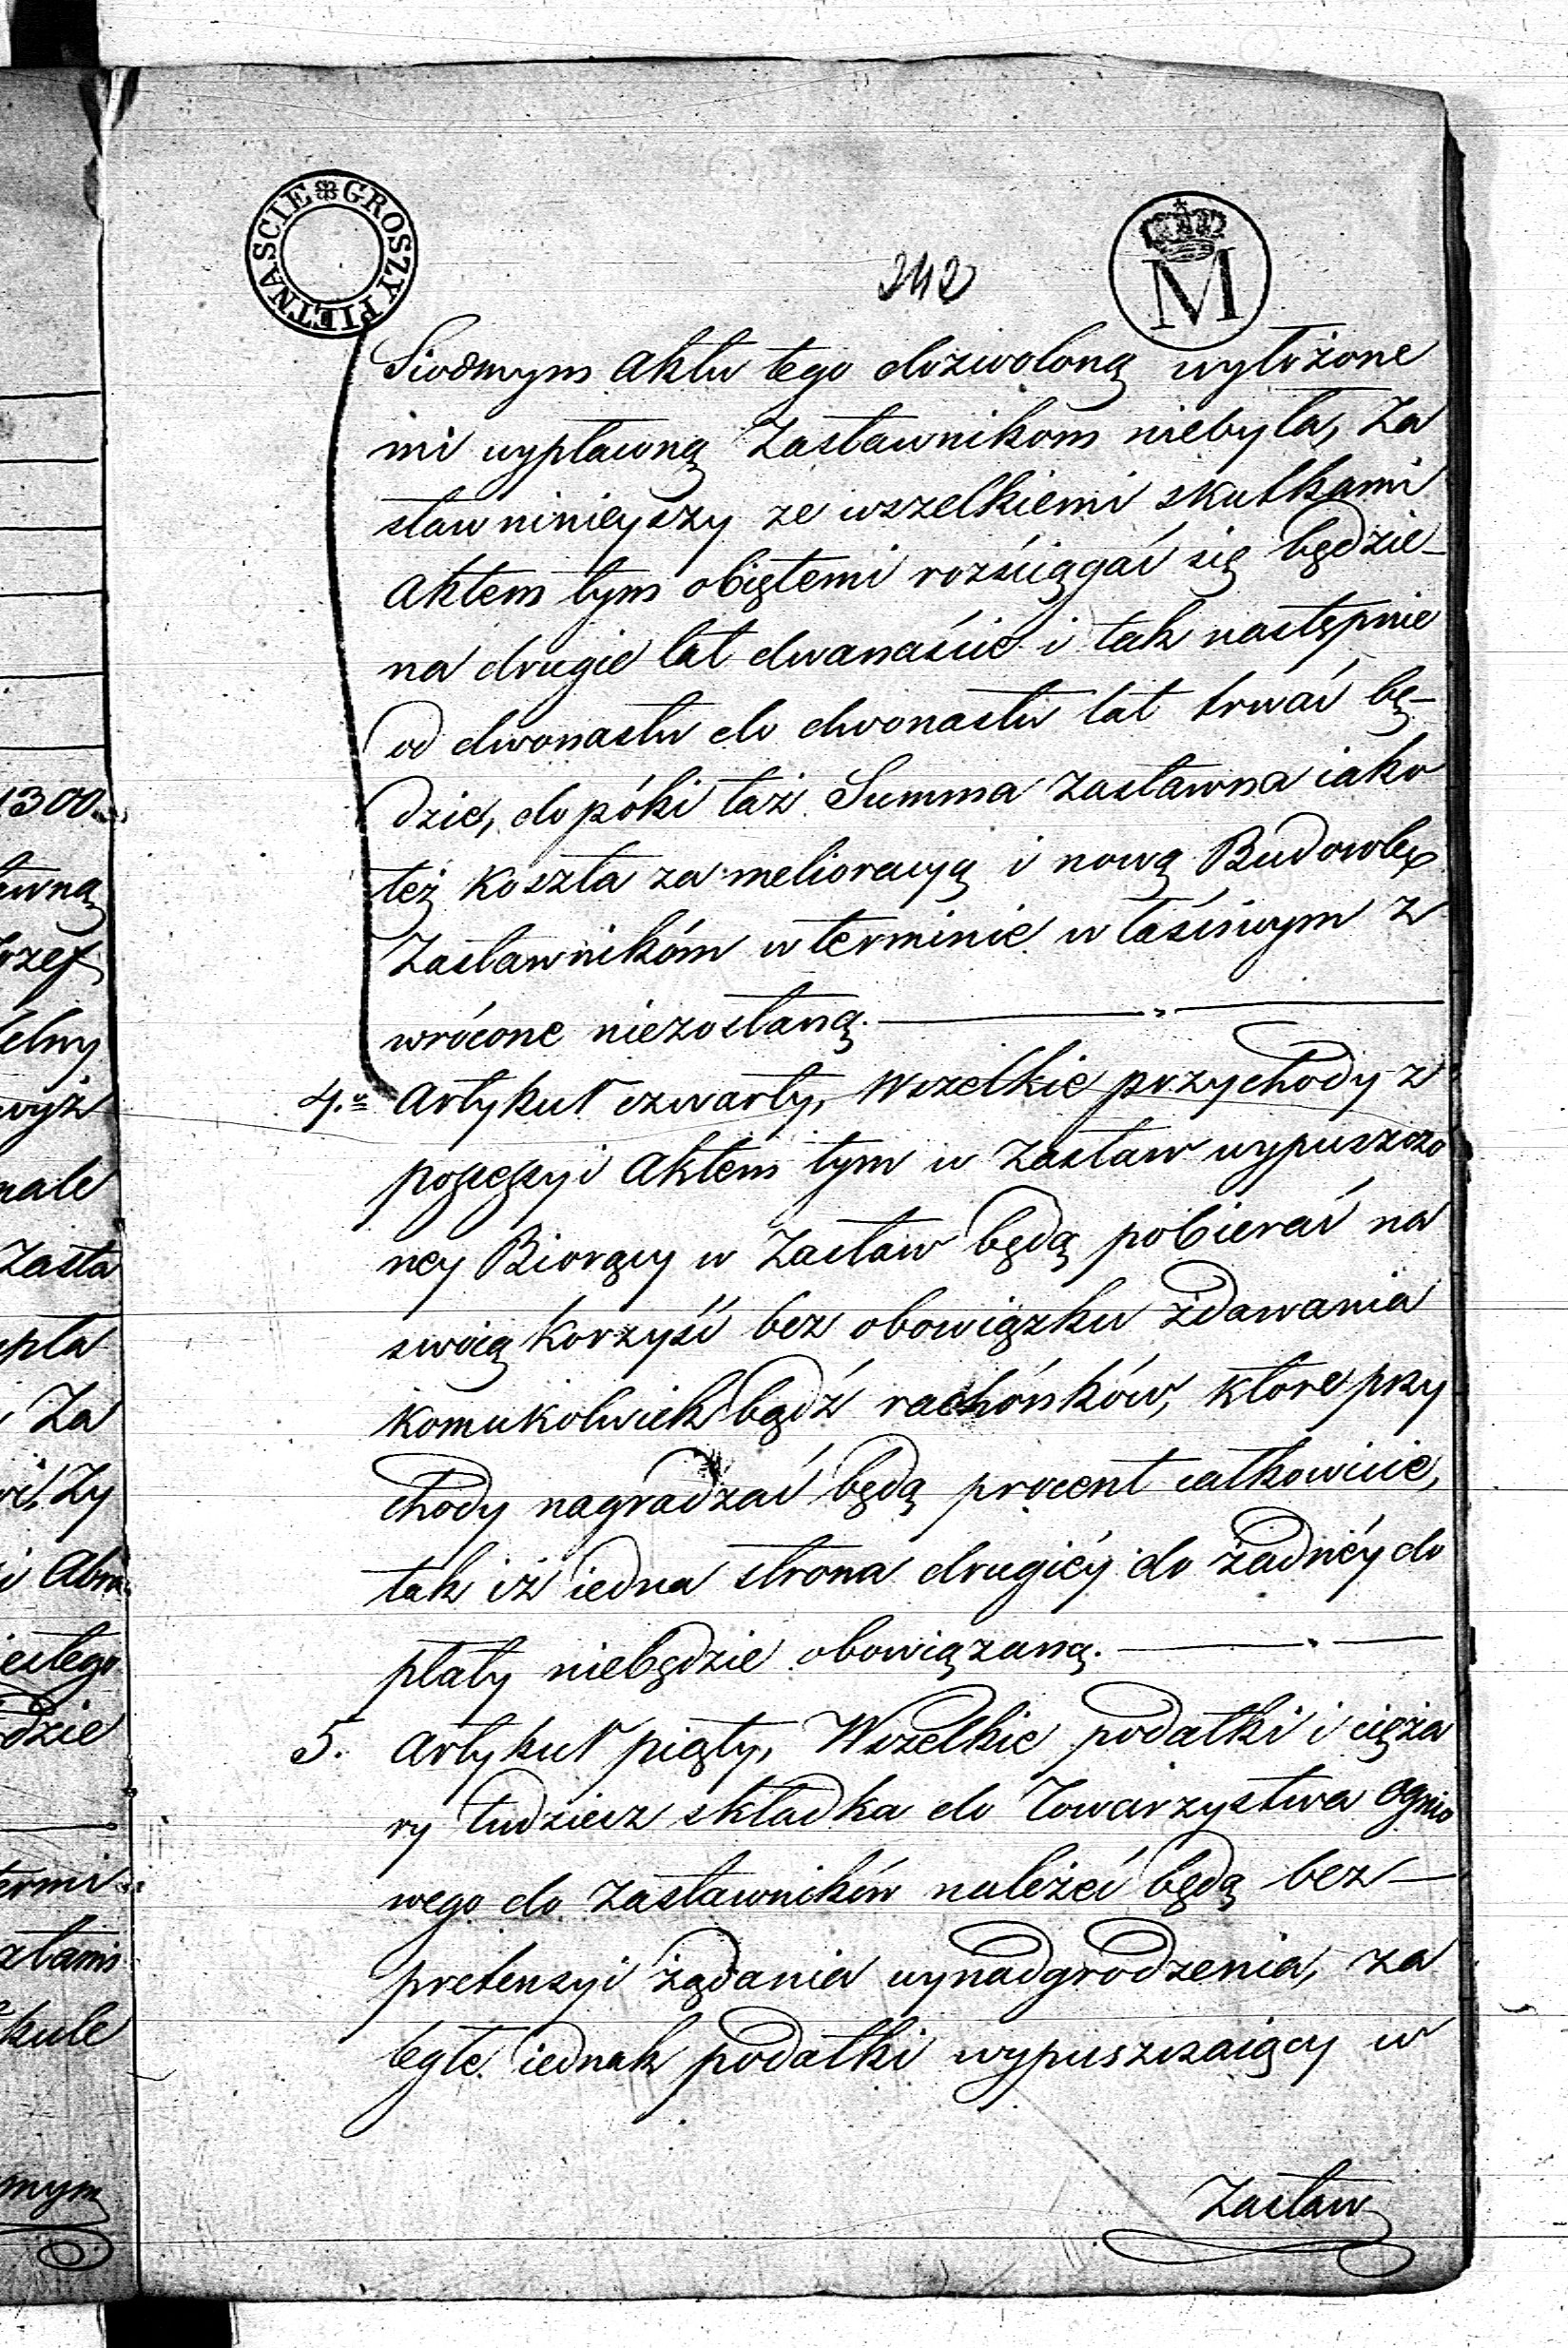 GROSZY PIĘTNAŚCIE
242
M
Siodmym aktu tego dozwoloną wyłożone
mi wypłaconą Zastawnikom niebyła, Za
staw ninieyszy ze wszelkiemi skutkami
aktem tym obiętemi rozściągać się będzie
na drugie lat dwanaście i tak następnie
od dwonastu do dwonastu lat trwać bę-
dzie, dopóki taż Summa zastawna iako
też koszta za melioracyą i nową Budowlę
Zastawnikóm w terminie właściwym z
wrócone niezostaną.
4. Artykuł czwarty, Wszelkie przychody z
possessyi aktem tym w zastaw wypuszczo
ney Biorący w Zastaw będą pobierać na
swoią korzyść bez obowiązku zdawania
komukolwiek bądź rachónków, które przy
chody nagradzać będą procent całkowicie,
tak iż iedna strona drugiéy do żadnéy do
płaty niebędzie obowiązaną.
5. Artykuł piąty, Wszelkie podatki i cięża
ry tudziesz składka do Towarzystwa Ognio
wego do zastawników należeć będą bez
pretensyi żądania wynadgrodzenia, za
ległe iednak podatki wypuszczaiący w
Zastaw
1300
awną
ózef
wyż
nale
Zasta
Za
Zy
dzie
termi
kule
mym